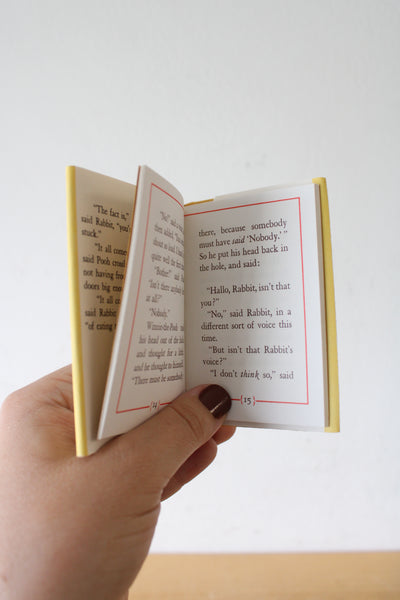 “The fact is,”
said Rabbit, “you’re
stuck.”
“It all come
said Pooh cross
not having fro
doors big eno
“It all c
said Rabbit
“of eating
“No!” said
then added,
about so loud
quite well the first
“Bother!” said
“Isn’t there anybody
at all?”
“Nobody.”
Winnie-the-Pooh
his head out of the
and thought for a
and he thought to himself
“There must be somebody
{14}
there, because somebody
must have said ‘Nobody.’ ”
So he put his head back in
the hole, and said:
“Hallo, Rabbit, isn’t that
you?”
“No,” said Rabbit, in a
different sort of voice this
time.
“But isn’t that Rabbit’s
voice?”
“I don’t think so,” said
{15}